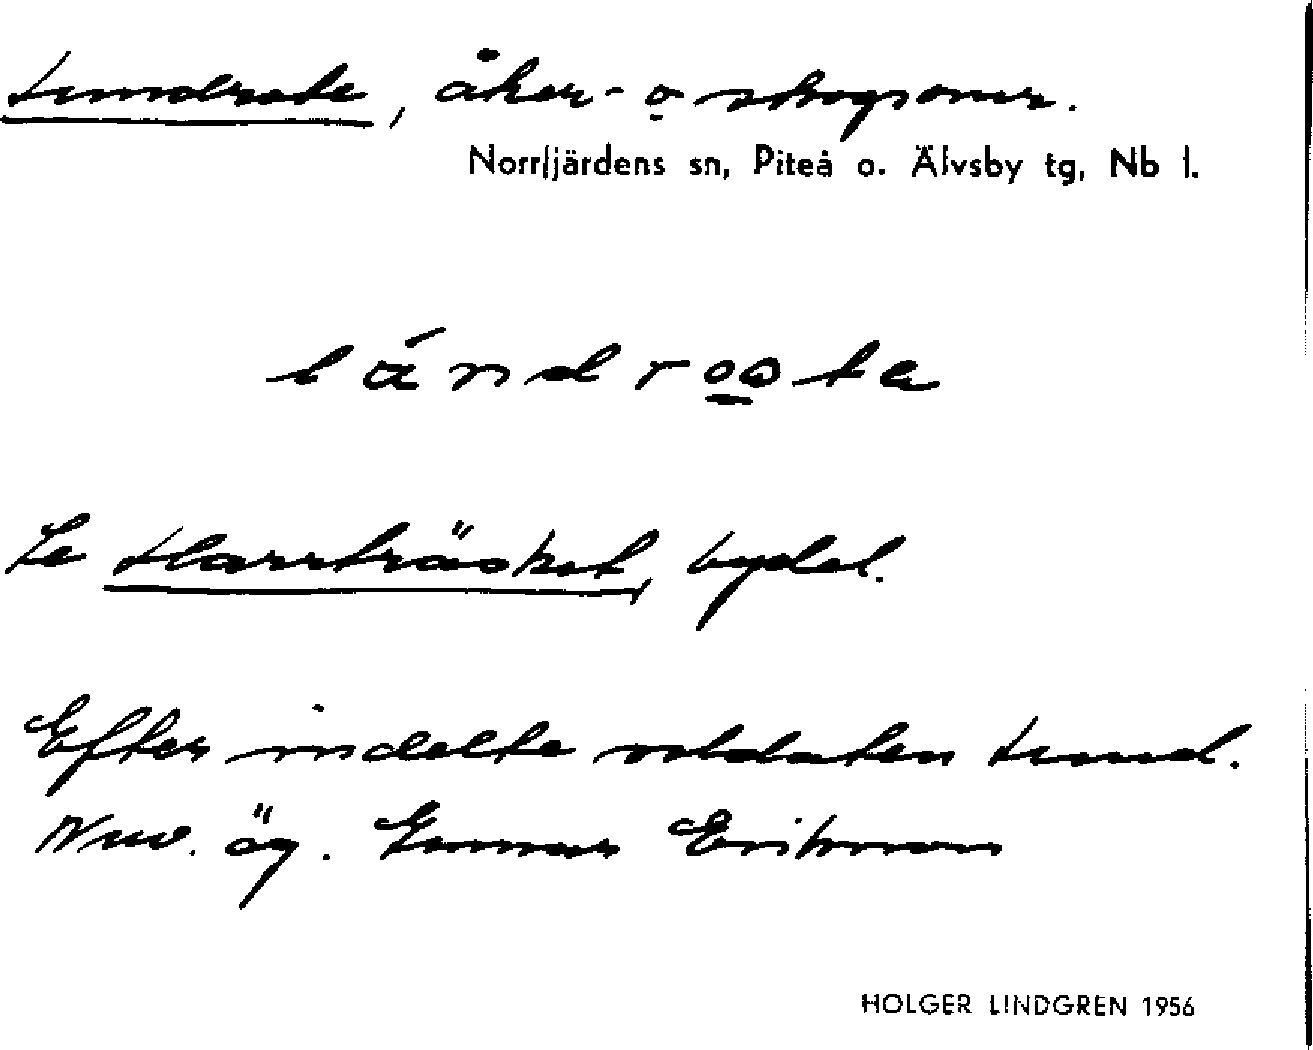 Lundrote, åker- o skogsomr.
Norrfjärdens sn, Piteå o. Älvsby tg, Nb l.
lándroota
Se Harrträsket, bydel.
Efter indelte soldaten Lund.
Nuv. äg. Gunnar Erikson
HOLGER LINDGREN 1956